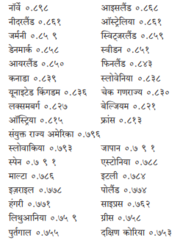 नॉर्वे ०.८९८
आइसलैंड ०.८६८
नीदरलैंड ०.८६१
ऑस्ट्रेलिया ०.८६१
जर्मनी ०.८५ ९
स्विट्जरलैंड ०.८५९
डेनमार्क ०.८५८
स्वीडन ०.८५१
आयरलैंड ०.८५०
फिनलैंड ०.८४३
कनाडा ०.८३९
स्लोवेनिया ०.८३८
यूनाइटेड किंगडम ०.८३६
चेक गणराज्य ०.८३०
लक्समबर्ग ०.८२७
बेल्जियम ०.८२१
ऑस्ट्रिया ०.८१५
फ्रांस ०.८१३
संयुक्त राज्य अमेरिका ०.७९६
स्लोवाकिया ०.७९३
जापान ०.७ ९ १
स्पेन ०.७ ९ १
एस्टोनिया ०.७८८
माल्टा ०.७८६
इटली ०.७८४
इज़राइल ०.७७८
पोलैंड ०.७७४
हंगरी ०.७७१
साइप्रस ०.७६२
लिथुआनिया ०.७५ ९
ग्रीस ०.७५८
पुर्तगाल ०.७५५
दक्षिण कोरिया ०.७५३